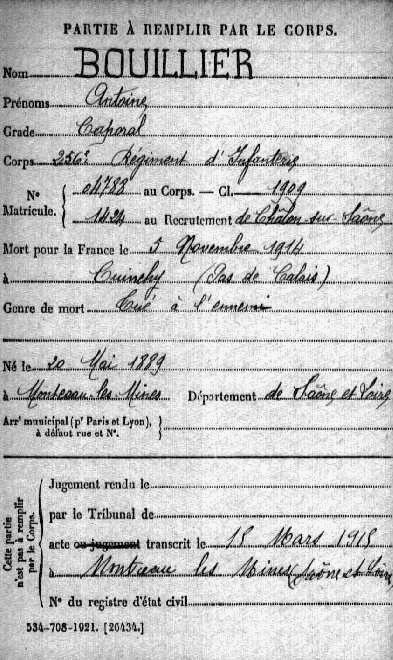 PARTIE À REMPLIR PAR LE CORPS.
Nom BOUILLIER
Prénoms Antoine
Grade Caporal
Corps 256e Régiment d'Infanterie
N° Matricule. { 04788 au Corps. — Cl. 1909
1424 au Recrutement de Chalon sur Saône
Mort pour la France le 5 Novembre 1914
à Cuinchy (Pas de Calais)
Genre de mort Tué à l'ennemi
Né le 20 Mai 1889
à Montceau les Mines Département de Saône et Loire
Arrt municipal (pr Paris et Lyon), à défaut rue et N°. }
Cette partie n'est pas à remplir par le Corps.
Jugement rendu le
par le Tribunal de
acte ou jugement transcrit le 15 Mars 1915
à Montceau les Mines (Saône et Loire
N° du registre d'état civil
534-708-1921. [26434.]